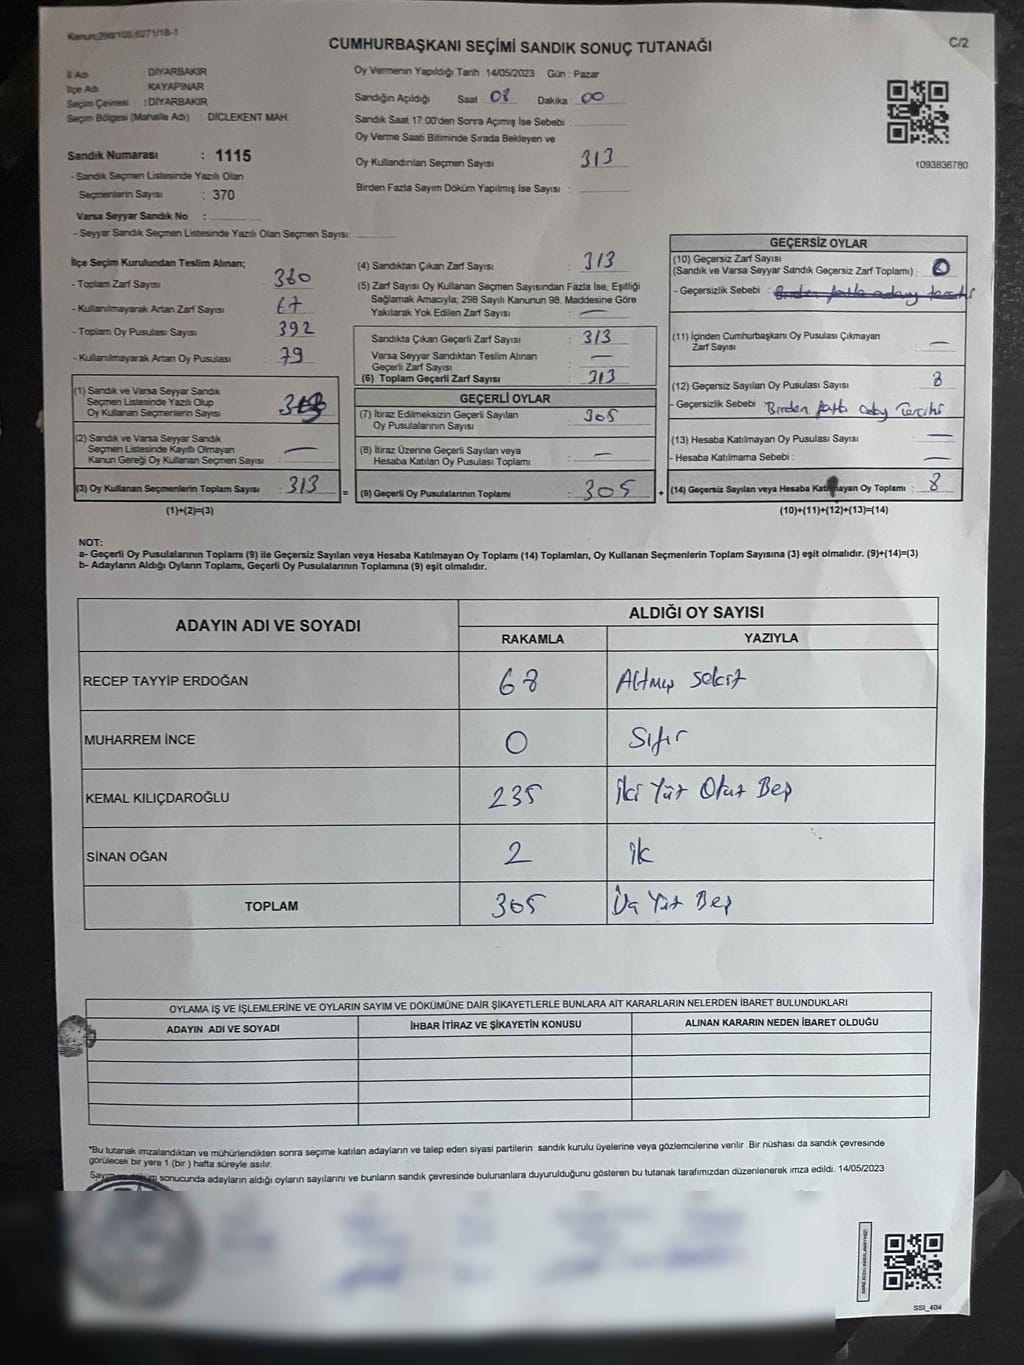 Kanun:298/108,6271/18-1
CUMHURBAŞKANI SEÇİMİ SANDIK SONUÇ TUTANAĞI
C/2
İl Adı DİYARBAKIR
İlçe Adı : KAYAPINAR
Seçim Çevresi : DİYARBAKIR
Seçim Bölgesi (Mahalle Adı) DİCLEKENT MAH.
Sandık Numarası : 1115
- Sandık Seçmen Listesinde Yazılı Olan
Seçmenlerin Sayısı : 370
Varsa Seyyar Sandık No :
- Seyyar Sandık Seçmen Listesinde Yazılı Olan Seçmen Sayısı:
Oy Vermenin Yapıldığı Tarih : 14/05/2023 Gün : Pazar
Sandığın Açıldığı Saat : 08 Dakika : 00
Sandık Saat 17.00'den Sonra Açımış İse Sebebi :
Oy Verme Saati Bitiminde Sırada Bekleyen ve
Oy Kullandırılan Seçmen Sayısı 313
Birden Fazla Sayım Döküm Yapılmış İse Sayısı :
1093836780
İlçe Seçim Kurulundan Teslim Alınan;
- Toplam Zarf Sayısı : 380
- Kullanılmayarak Artan Zarf Sayısı : 67
- Toplam Oy Pusulası Sayısı : 392
- Kullanılmayarak Artan Oy Pusulası : 79
(1) Sandık ve Varsa Seyyar Sandık
Seçmen Listesinde Yazılı Olup
Oy Kullanan Seçmenlerin Sayısı :
(2) Sandık ve Varsa Seyyar Sandık
Seçmen Listesinde Kayıtlı Olmayan
Kanun Gereği Oy Kullanan Seçmen Sayısı : —
(3) Oy Kullanan Seçmenlerin Toplam Sayısı : 313
(1)+(2)=(3)
=
(4) Sandıktan Çıkan Zarf Sayısı : 313
(5) Zarf Sayısı Oy Kullanan Seçmen Sayısından Fazla İse, Eşitliği
Sağlamak Amacıyla; 298 Sayılı Kanunun 98. Maddesine Göre
Yakılarak Yok Edilen Zarf Sayısı : —
Sandıkta Çıkan Geçerli Zarf Sayısı : 313
Varsa Seyyar Sandıktan Teslim Alınan
Geçerli Zarf Sayısı : —
(6) Toplam Geçerli Zarf Sayısı : 313
GEÇERLİ OYLAR
(7) İtiraz Edilmeksizin Geçerli Sayılan
Oy Pusulalarının Sayısı : 305
(8) İtiraz Üzerine Geçerli Sayılan veya
Hesaba Katılan Oy Pusulası Toplamı : —
(9) Geçerli Oy Pusulalarının Toplamı : 305
+
GEÇERSİZ OYLAR
(10) Geçersiz Zarf Sayısı
(Sandık ve Varsa Seyyar Sandık Geçersiz Zarf Toplamı) : 0
- Geçersizlik Sebebi : Birden fazla aday tercihi
(11) İçinden Cumhurbaşkanı Oy Pusulası Çıkmayan
Zarf Sayısı : —
(12) Geçersiz Sayılan Oy Pusulası Sayısı : 8
- Geçersizlik Sebebi : Birden fazla aday Tercihi
(13) Hesaba Katılmayan Oy Pusulası Sayısı : —
- Hesaba Katılmama Sebebi : —
(14) Geçersiz Sayılan veya Hesaba Katılmayan Oy Toplamı : 8
(10)+(11)+(12)+(13)=(14)
NOT:
a- Geçerli Oy Pusulalarının Toplamı (9) ile Geçersiz Sayılan veya Hesaba Katılmayan Oy Toplamı (14) Toplamları, Oy Kullanan Seçmenlerin Toplam Sayısına (3) eşit olmalıdır. (9)+(14)=(3)
b- Adayların Aldığı Oyların Toplamı, Geçerli Oy Pusulalarının Toplamına (9) eşit olmalıdır.
ADAYIN ADI VE SOYADI
ALDIĞI OY SAYISI
RAKAMLA YAZIYLA
RECEP TAYYİP ERDOĞAN 68 Altmış Sekiz
MUHARREM İNCE 0 Sıfır
KEMAL KILIÇDAROĞLU 235 İki Yüz Otuz Beş
SİNAN OĞAN 2 İki
TOPLAM 305 Üç Yüz Beş
OYLAMA İŞ VE İŞLEMLERİNE VE OYLARIN SAYIM VE DÖKÜMÜNE DAİR ŞİKAYETLERLE BUNLARA AİT KARARLARIN NELERDEN İBARET BULUNDUKLARI
ADAYIN ADI VE SOYADI İHBAR İTİRAZ VE ŞİKAYETİN KONUSU ALINAN KARARIN NEDEN İBARET OLDUĞU
*Bu tutanak imzalandıktan ve mühürlendikten sonra seçime katılan adayların ve talep eden siyasi partilerin sandık kurulu üyelerine veya gözlemcilerine verilir. Bir nüshası da sandık çevresinde
görülecek bir yere 1 (bir ) hafta süreyle asılır.
Sayım döküm sonucunda adayların aldığı oyların sayılarını ve bunların sandık çevresinde bulunanlara duyurulduğunu gösteren bu tutanak tarafımızdan düzenlenerek imza edildi. 14/05/2023
SSI_404